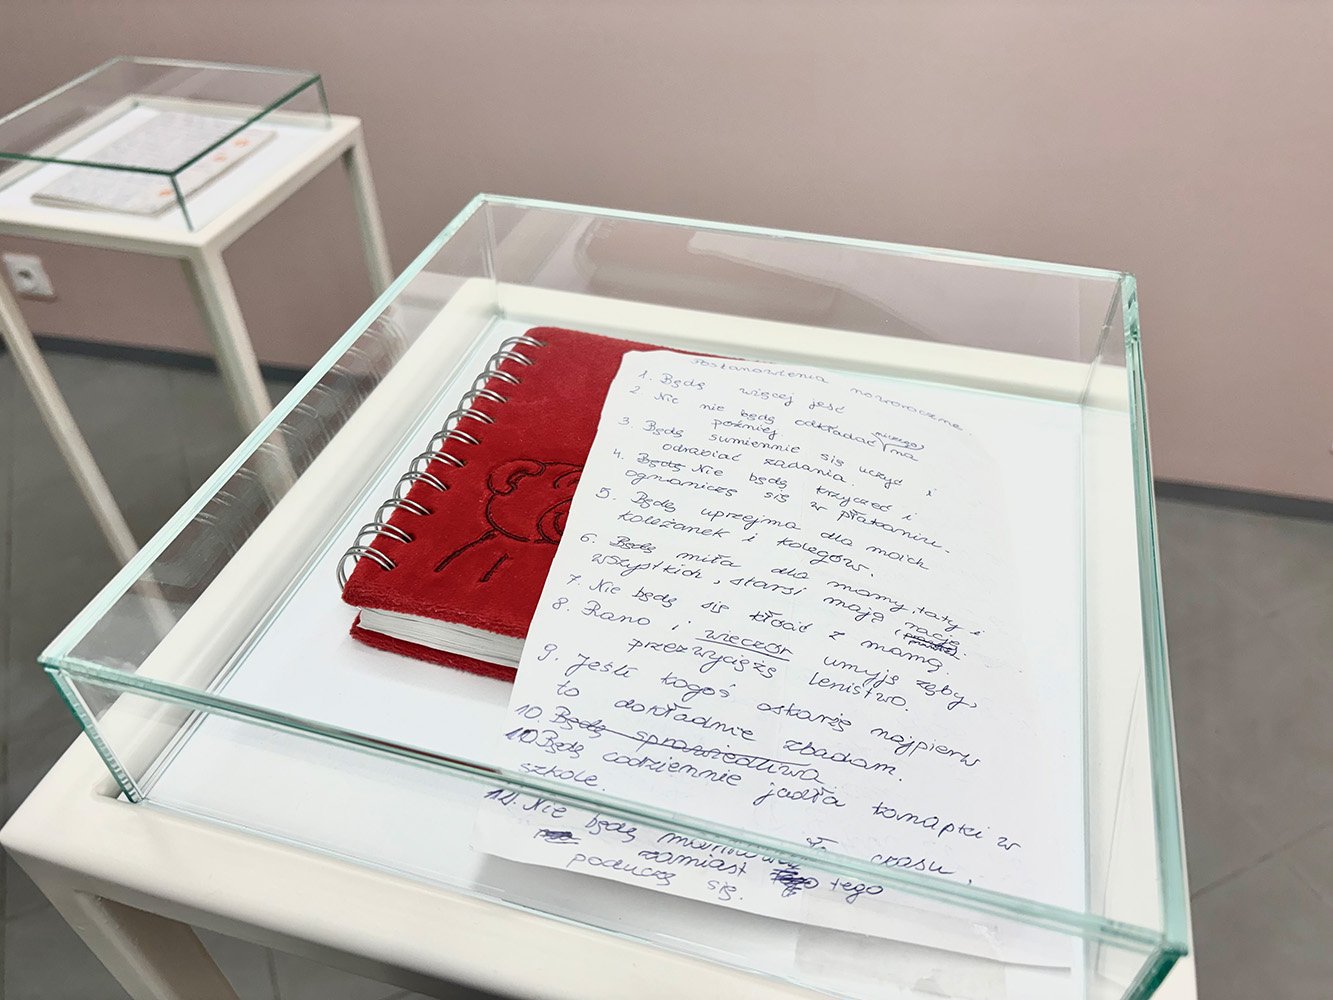 Postanowienia noworoczne.
1. Będę więcej jeść
2. Nie nie będę odkładać niczego na
później
3. Będę sumiennie się uczyć i
odrabiać zadania.
4. Będę Nie będę krzyczeć i
ograniczę się w płakaniu.
5. Będę uprzejma dla moich
koleżanek i kolegów.
6. Będę miła dla mamy, taty i
wszystkich, starsi mają rację.
7. Nie będę się kłócić z mamą.
8. Rano i wieczór umyję zęby,
przezwyciężę lenistwo.
9. Jeśli kogoś oskarżę najpierw
to dokładnie zbadam.
10. Będę sprawiedliwa
10 Będę codziennie jadła kanapki w
szkole.
11. Nie będę marnowała czasu,
zamiast tego tego
poduczę się.